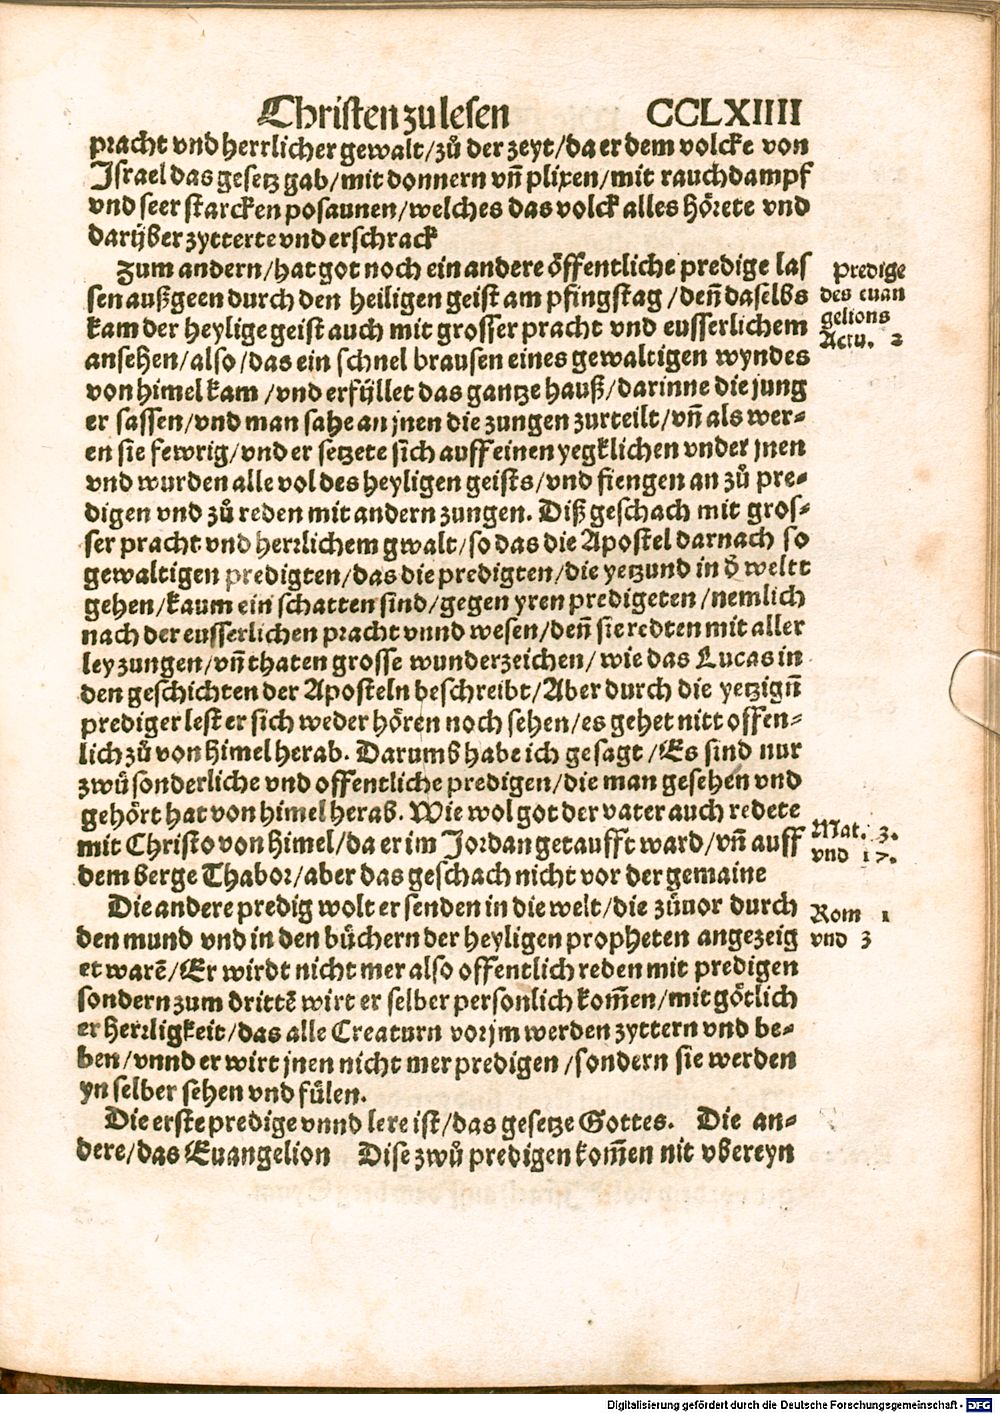 Christen zu lesen CCLXIIII
pracht vnd herrlicher gewalt/zů der zeyt/da er dem volcke von
Israel das gesetz gab/mit donnern vñ plixen/mit rauchdampf
vnd seer starcken posaunen/welches das volck alles hörete vnd
darÿber zytterte vnd erschrack
Zum andern/hat got noch ein andere öffentliche predige las
sen außgeen durch den heiligen geist am pfingstag/deñ daselbs
kam der heylige geist auch mit grosser pracht vnd eusserlichem
ansehen/also/das ein schnel brausen eines gewaltigen wyndes
von himel kam/vnd erfÿllet das gantze hauß/darinne die jung
er sassen/vnd man sahe an jnen die zungen zurteilt/vñ als wer-
en sie fewrig/vnd er setzete sich auff einen yegklichen vnder jnen
vnd wurden alle vol des heyligen geists/vnd fiengen an zů pre-
digen vnd zů reden mit andern zungen. Diß geschach mit gros-
ser pracht vnd herrlichem gwalt/so das die Apostel darnach so
gewaltigen predigten/das die predigten/die yetzund in d̄ weltt
gehen/kaum ein schatten sind/gegen yren predigeten/nemlich
nach der eusserlichen pracht vnnd wesen/deñ sie redten mit aller
ley zungen/vñ thaten grosse wunderzeichen/wie das Lucas in
den geschichten der Aposteln beschreibt/Aber durch die yetzigñ
prediger lest er sich weder hören noch sehen/es gehet nitt offen-
lich zů von himel herab. Darumb habe ich gesagt/Es sind nur
zwů sonderliche vnd offentliche predigen/die man gesehen vnd
gehört hat von himel herab. Wie wol got der vater auch redete
mit Christo von himel/da er im Jordan getaufft ward/vñ auff
dem berge Thabor/aber das geschach nicht vor der gemaine
Die andere predig wolt er senden in die welt/die zůuor durch
den mund vnd in den bůchern der heyligen propheten angezeig
et warē/Er wirdt nicht mer also offentlich reden mit predigen
sondern zum drittē wirt er selber personlich kom̄en/mit götlich
er herrligkeit/das alle Creaturn vor jm werden zyttern vnd be-
ben/vnnd er wirt jnen nicht mer predigen/sondern sie werden
yn selber sehen vnd fülen.
Die erste predige vnnd lere ist/das gesetze Gottes. Die an-
dere/das Euangelion Dise zwů predigen kom̄en nit vbereyn
predige
des euan
gelions
Actu. 2
Mat. 3.
vnd 17.
Rom 1
vnd 3
Digitalisierung gefördert durch die Deutsche Forschungsgemeinschaft - DFG